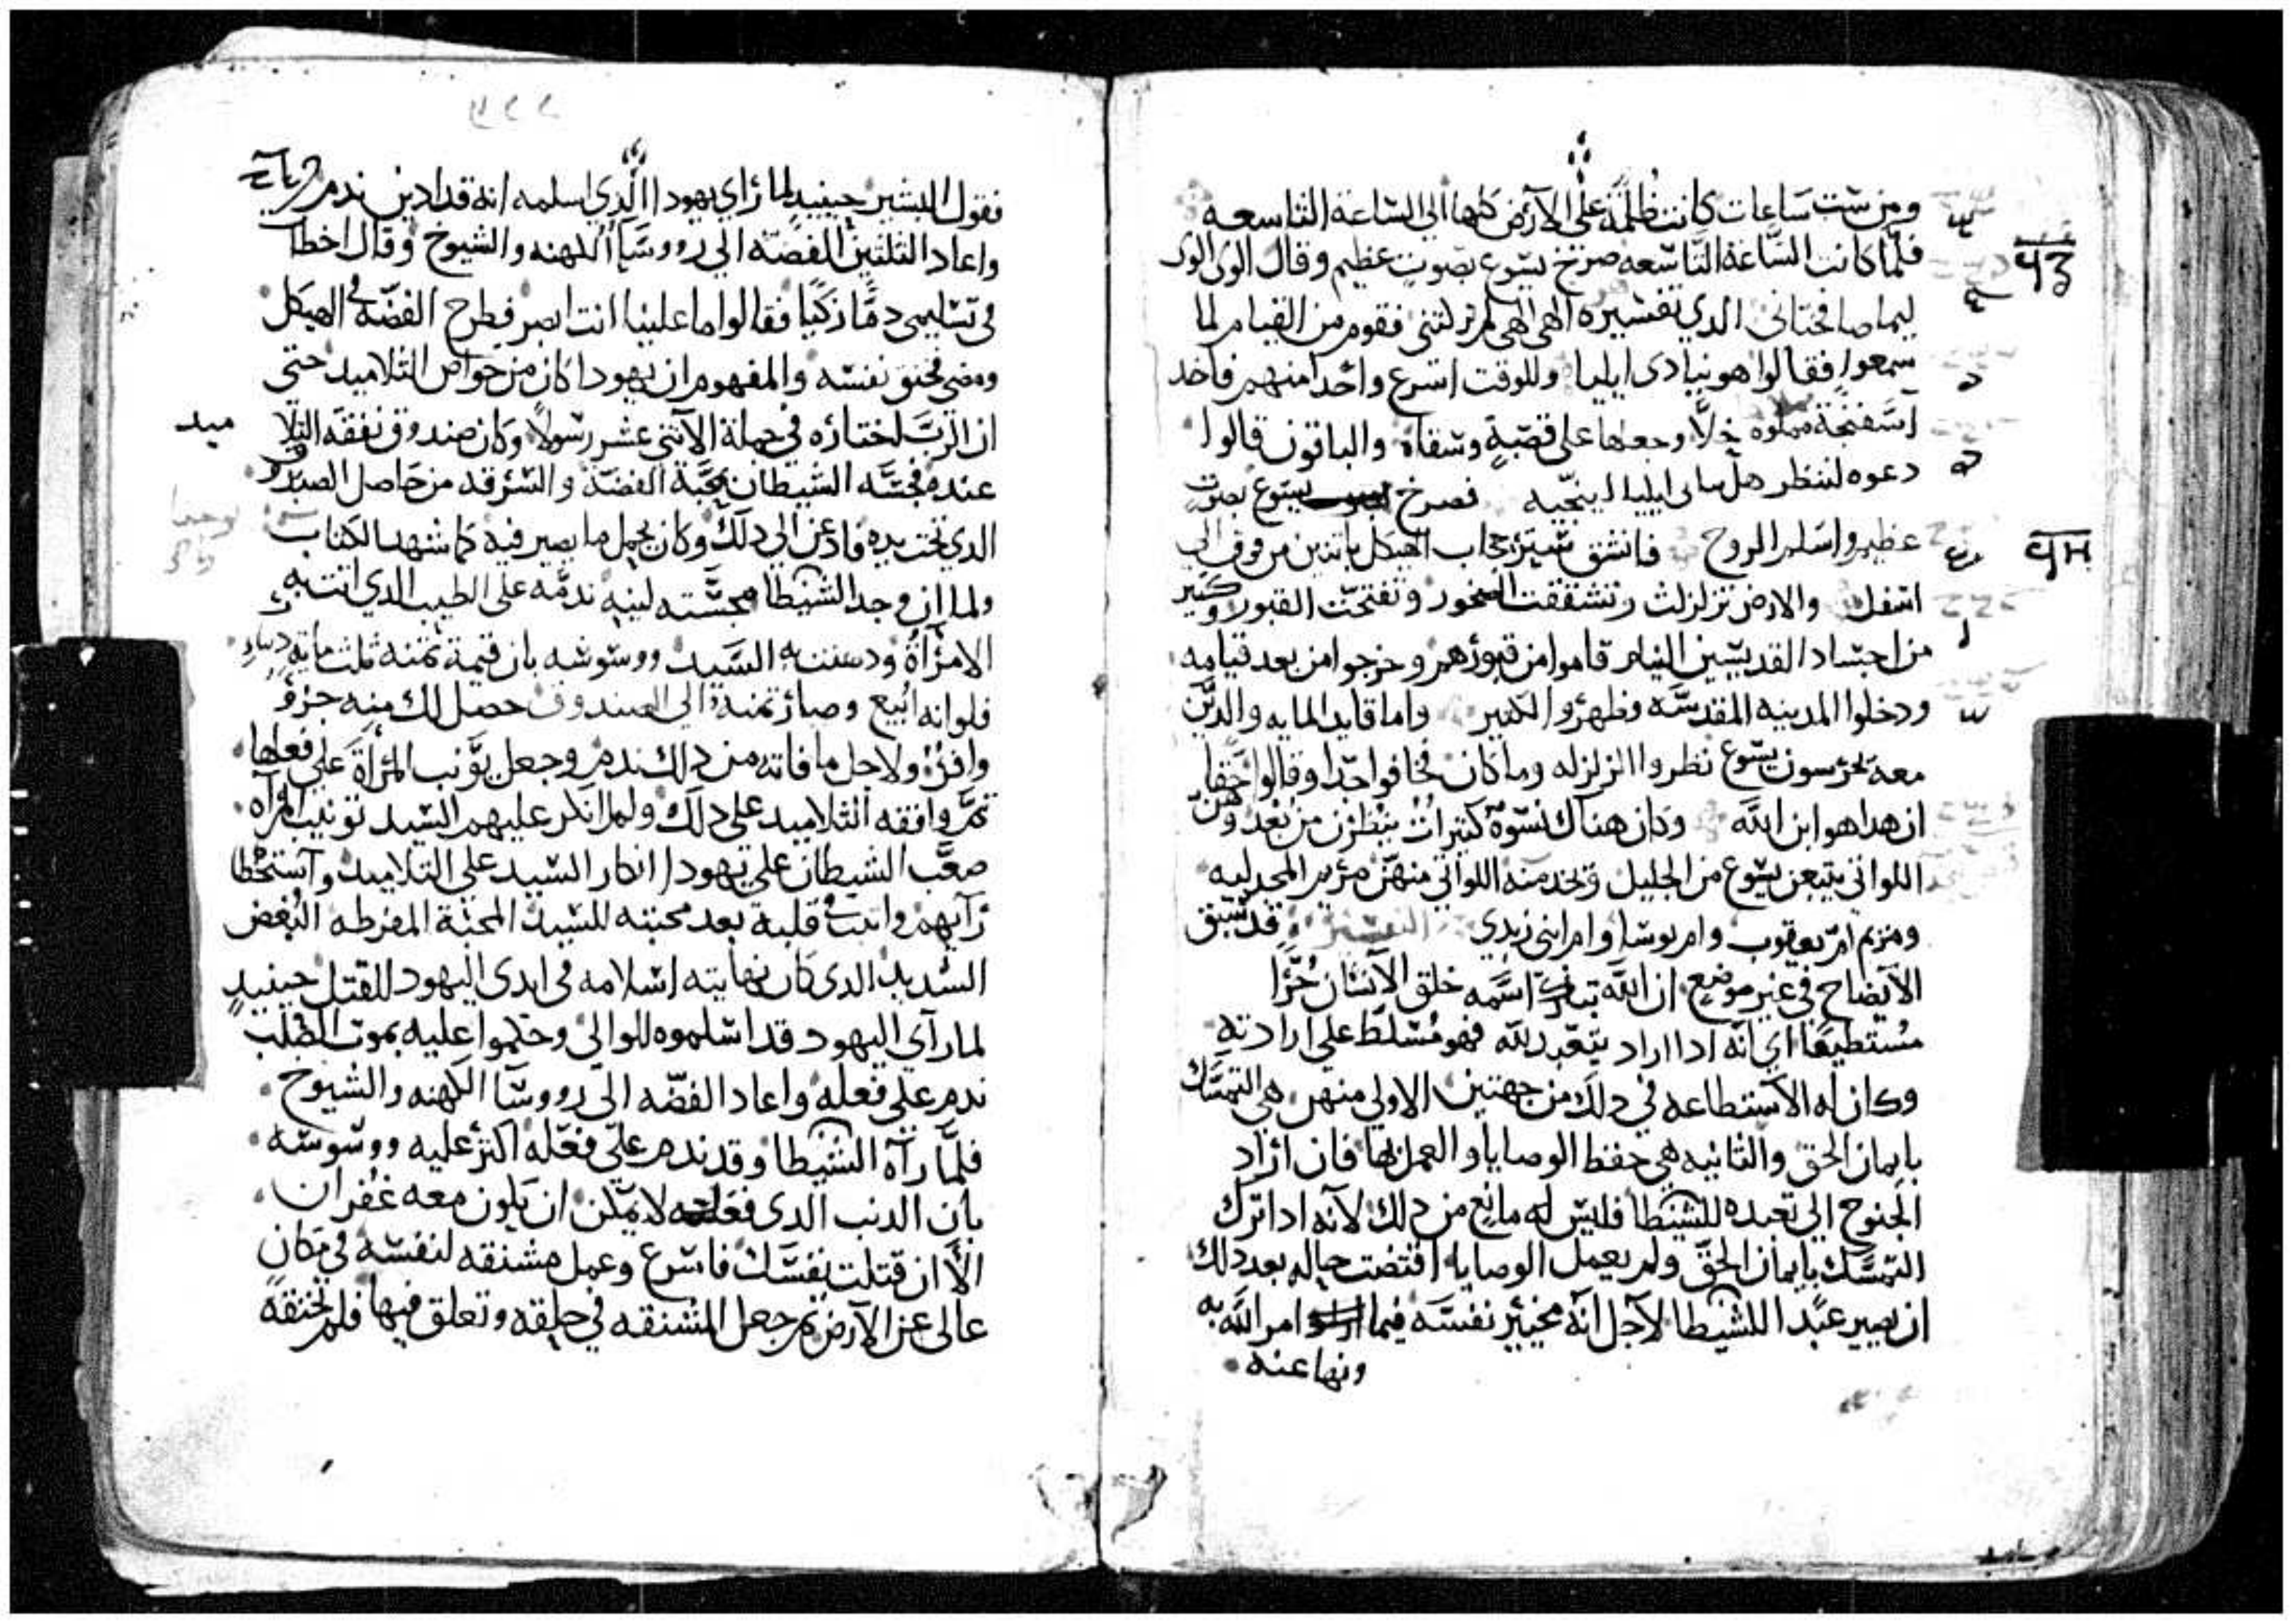 ومن ست ساعات كانت ظلمة على الارض كلها الى الساعة التاسعه
فلما كانت الساعة التاسعه صرخ يسوع بصوت عظيم وقال الوى الوى
ليما صافختانى الدي تفسيره الهى الهى لم تركتنى فقوم من القيام لما
سمعوا فقالوا هو ينادى ايليا وللوقت اسرع واحدا منهم فاخد
اسفنجة مملوه خلاً وجعلها على قصبةٍ وسقاه والباقون قالوا
دعوه لننظر هل ياتى ايليا لينجيه فصرخ يسوع بصوت
عظيم واسلم الروح فانشق ستر حجاب الهيكل باتنين من فوق الى
اسفل والارض تزلزلت وتشققت الصخور وتفتحت القبور وكتير
من اجساد القديسين النيام قاموا من قبورهم وخرجوا من بعد قيامه
ودخلوا المدينه المقدسه وظهروا لكتير واما قايد المايه والدين
معه يحرسون يسوع نظروا الزلزله وما كان فخافوا جدا وقالوا حقا
ان هدا هو ابن الله وكان هناك نسوة كتيرات ينظرن من بعد وهن
اللواتى يتبعن يسوع من الجليل وتخدمنه اللواتى منهن مريم المجدليه
ومريم ام يعقوب وام يوسا وام ابنى زبدي التفسير قد سبق
الايضاح فى غير موضع ان الله تبارك اسمه خلق الانسان حرا
مستطيعا اي انه ادا اراد يتعبد لله فهو مسلط على ارادته
وكان له الاستطاعه فى دلك من جهتين الاولى منهن هى التمسك
بايمان الحق والتانيه هى حفظ الوصايا والعمل بها فان اراد
الجنوح الى تعبده للشيطا فليس له مانع من دلك لانه ادا ترك
التمسك بايمان الحق ولم يعمل الوصايا اقتضت حاله بعد دلك
ان يصير عبدا للشيطا لاجل انه مخير نفسه فيما امر الله به
ونها عنه
فقول البشير حينيد لما راى يهودا الدي اسلمه انه قد ادين ندم
واعاد التلتين الفضة الى رووسا الكهنه والشيوخ وقال اخطات
فى تسليمى دما زكيا فقالوا ما علينا انت ابصر فطرح الفضة فى الهيكل
ومضى فخنق نفسه والمفهوم ان يهودا كان من خواص التلاميد حتى
ان الرب اختاره فى جملة الاتنى عشر رسولاً وكان صندوق نفقة التلا
ميد
عنده فجسه الشيطان بمحبة الفضة والسرقه من حاصل الصندوق
الدي تحت يده فادعن الى دلك وكان يحمل ما يصير فيه كما شهد الكتاب
ولما ان وجد الشيطا مجسته لينه ندمه على الطيب الدي اتت به
الامراة ودهنت به السيد ووسوسه بان قيمة تمنه تلتمايه دينار
فلو انه ابيع وصار تمنه الى الصندوق حصل لك منه جزو
وافر ولاجل ما فاته من دلك ندم وجعل يونب المراة على فعلها
تم وافقه التلاميد على دلك ولما انكر عليهم السيد تونيب المراه
صعب الشيطان على يهودا انكار السيد على التلاميد واستخطا
رايهم واتبت فى قلبه بعد محبته للسيد المحبة المفرطه البغض
الشديد الدى كان نهايته اسلامه فى ايدى اليهود للقتل حينيدٍ
لما راى اليهود قد اسلموه للوالى وحكموا عليه بموت الصلب
ندم على فعله واعاد الفضه الى رووسا الكهنه والشيوخ
فلما راه الشيطا وقد ندم على فعله اكتر عليه ووسوسه
بان الدنب الدى فعله لا يمكن ان يكون معه غفران
الا ان قتلت نفسك فاسرع وعمل مشنقه لنفسه فى مكان
عالى عن الارض تم جعل المشنقه فى حلقه وتعلق فيها فلم تخنقه